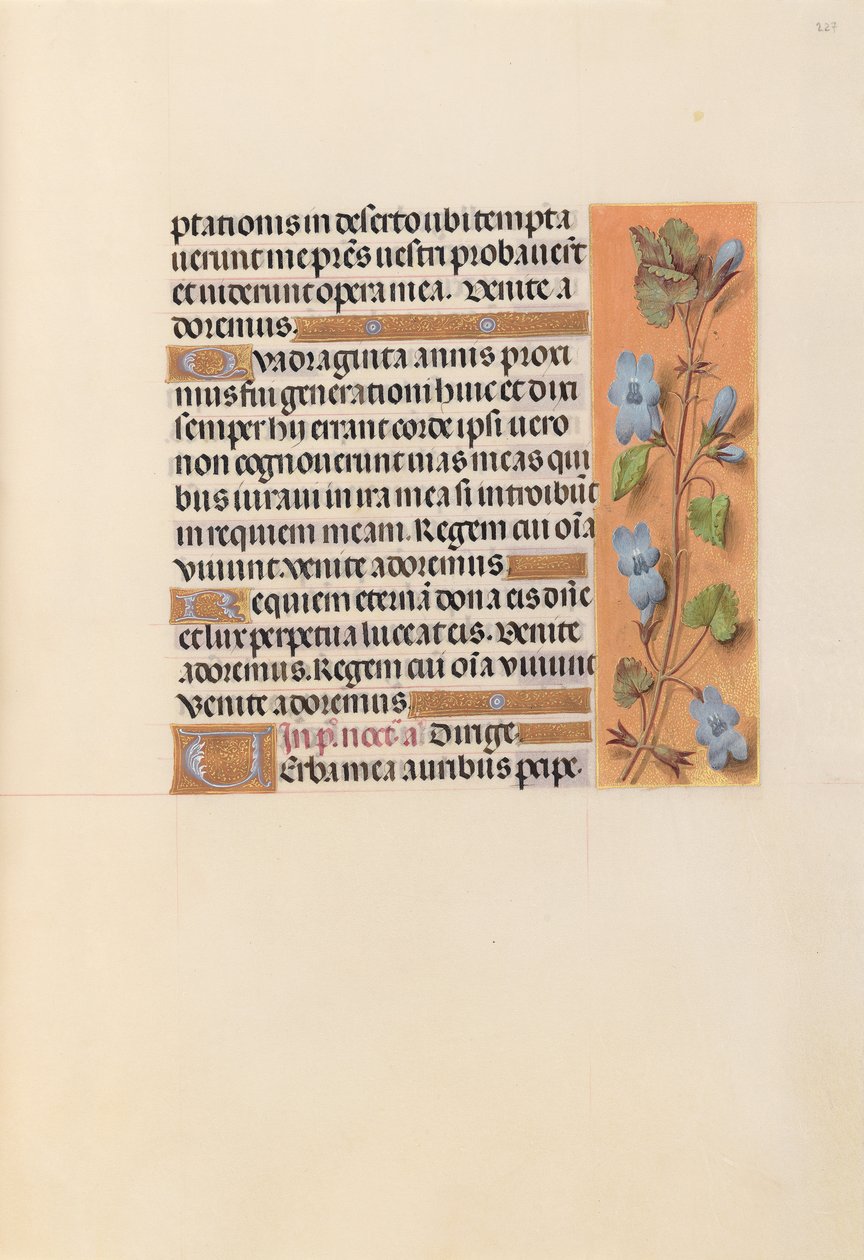 227
ptationis in deserto ubi tempta
uerunt me pr̄es uestri probauer̄t
et uiderunt opera mea. Venite a
doremus.
Quadraginta annis proxi
mus fui generationi huic et dixi
semper hij errant corde ipsi uero
non cognouerunt uias meas qui
bus iuraui in ira mea si introibūt
in requiem meam. Regem cui oīa
viuunt. venite adoremus.
Requiem eternā dona eis dn̄e
et lux perpetua luceat eis. Venite
adoremus. Regem cui oīa viuunt
Venite adoremus.
In p̊. noct̄. a̅ Dirige.
Uerba mea auribus ꝑcipe.